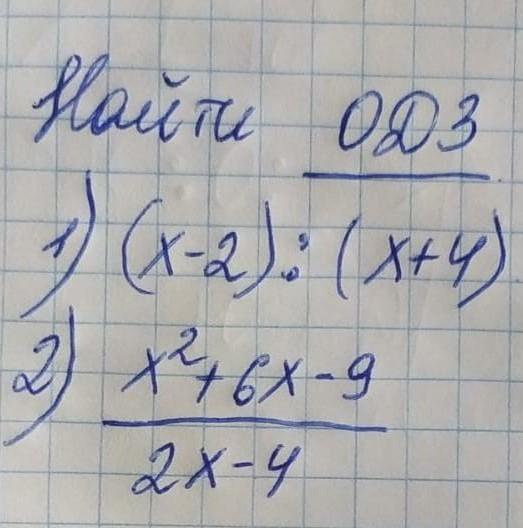 Найти ОДЗ
1) (x-2):(x+4)
2) x²+6x-9
2x-4